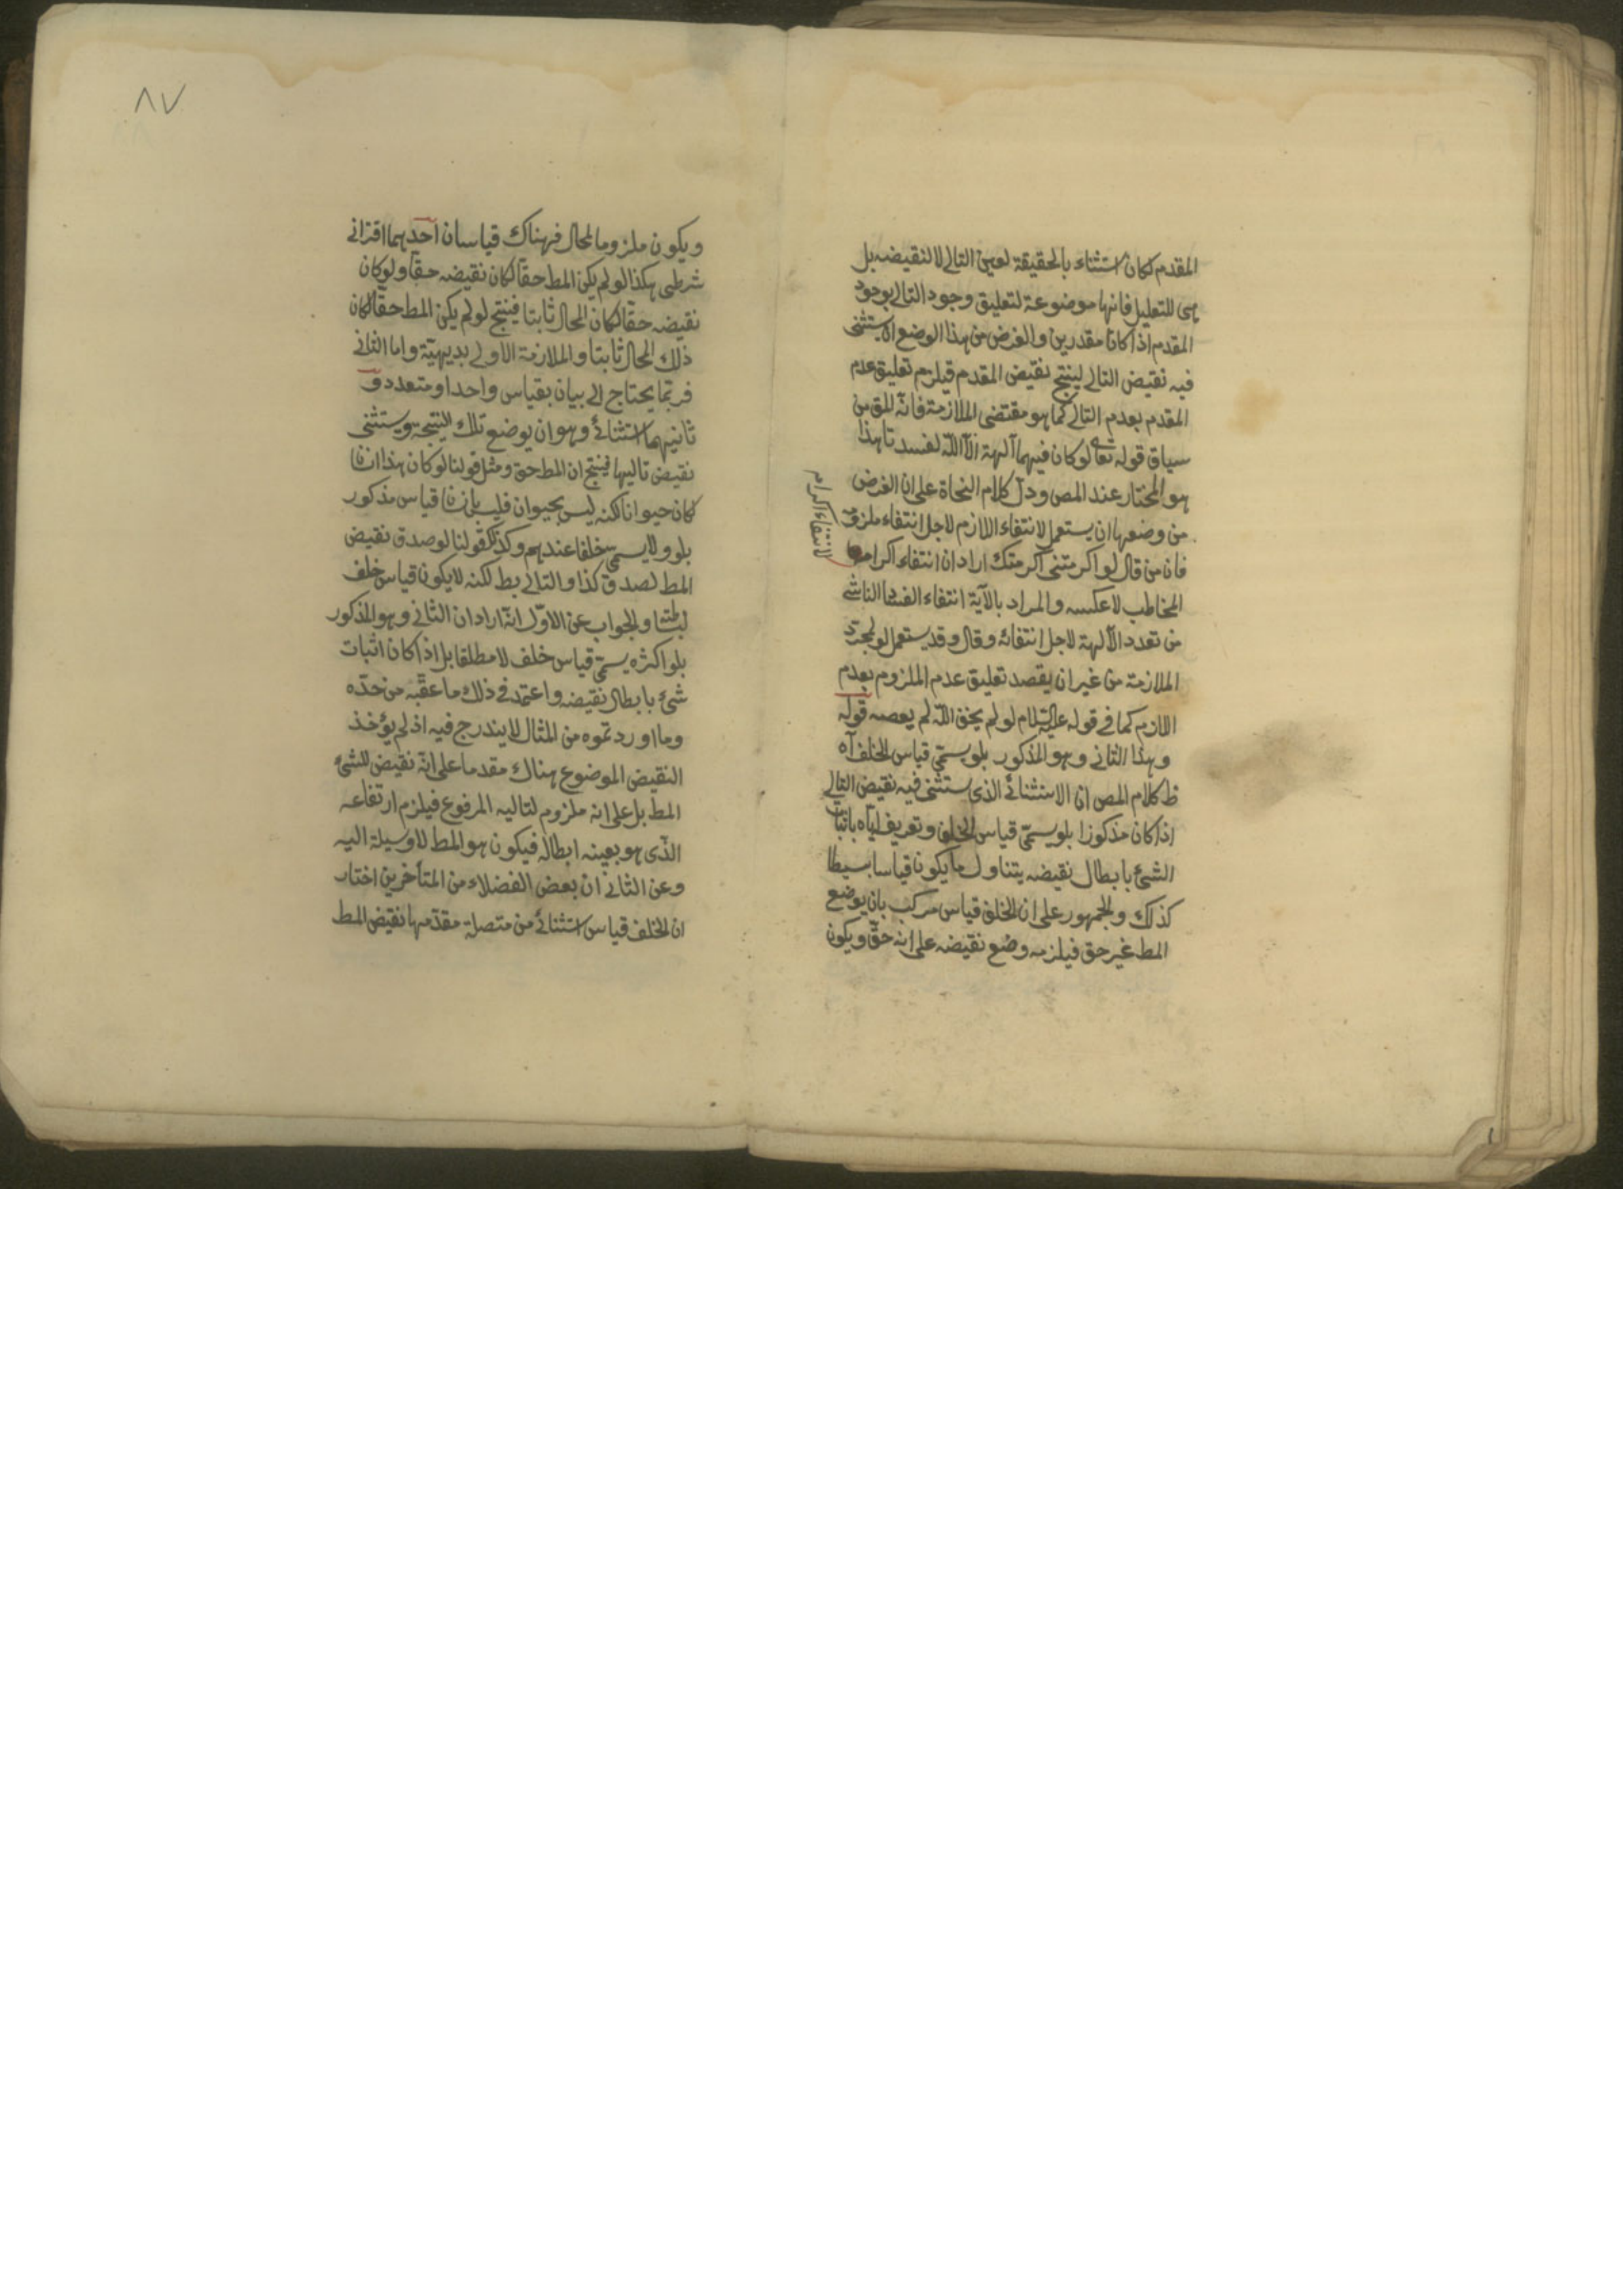 المقدم لكان استثناء بالحقيقة لعين التالي لا لنقيضه بل
هي للتعليل فانها موضوعة لتعليق وجود التالي بوجود
المقدم اذا كانا مقدرين والغرض من هذا الوضع ان يستثنى
فيه نقيض التالي لينتج نقيض المقدم فيلزم تعليق عدم
المقدم بعدم التالي كما هو مقتضى الملازمة فانه المق من
سياق قوله تعالى لو كان فيهما آلهة الا الله لفسدتا هذا
هو المختار عند المص ودل كلام النحاة على ان الغرض
من وضعها ان يستعمل لانتفاء اللازم لاجل انتفاء ملزومه
فان من قال لو اكرمتني اكرمتك اراد ان انتفاء اكرامه
لانتفاء اكرام
المخاطب لا عكسه والمراد بالآية انتفاء الفساد الناشي
من تعدد الآلهة لاجل انتفائه وقال وقد يستعمل لو لمجرد
الملازمة من غير ان يقصد تعليق عدم الملزوم بعدم
اللازم كما في قوله عليه السلام لو لم يخف الله لم يعصه قوله
وهذا الثاني وهو المذكور بلو يسمى قياس الخلف آه
ظ كلام المص ان الاستثنائي الذي يستثنى فيه نقيض التالي
اذا كان مذكورا بلو يسمى قياس الخلف وتعريف اياه باثبات
الشئ بابطال نقيضه يتناول ما يكون قياسا بسيطا
كذلك والجمهور على ان الخلف قياس مركب بان يوضع
المط غير حق فيلزمه وضع نقيضه على انه حق ويكون
٨٧
ويكون ملزوما لمحال فهناك قياسان احدهما اقتراني
شرطي هكذا لو لم يكن المط حقا لكان نقيضه حقا ولو كان
نقيضه حقا لكان المحال ثابتا فينتج لو لم يكن المط حقا لكان
ذلك المحال ثابتا والملازمة الاولى بديهية واما الثاني
فربما يحتاج الى بيان بقياس واحد او متعدد و
ثانيهما استثنائي وهو ان يوضع تلك النتيجة ويستثنى
نقيض تاليها فينتج ان المط حق ومثل قولنا لو كان هذا انسانا
كان حيوانا لكنه ليس بحيوان فليس بانسان قياس مذكور
بلو ولا يسمى خلفا عندهم وكذلك قولنا لو صدق نقيض
المط لصدق كذا والتالي بط لكنه لا يكون قياس خلف
ببساطته والجواب عن الاول انه اراد ان الثاني وهو المذكور
بلو اكثره يسمى قياس خلف لا مطلقا بل اذا كان اثبات
شئ بابطال نقيضه واعتمد في ذلك ما عقبه من حده
وما اوردتموه من المثال لا يندرج فيه اذ لم يؤخذ
النقيض الموضوع هناك مقدما على انه نقيض للشئ
المط بل على انه ملزوم لتاليه المرفوع فيلزم ارتفاعه
الذي هو بعينه ابطاله فيكون هو المط لا وسيلة اليه
وعن الثاني ان بعض الفضلاء من المتأخرين اختار
ان الخلف قياس استثنائي من متصلة مقدمها نقيض المط